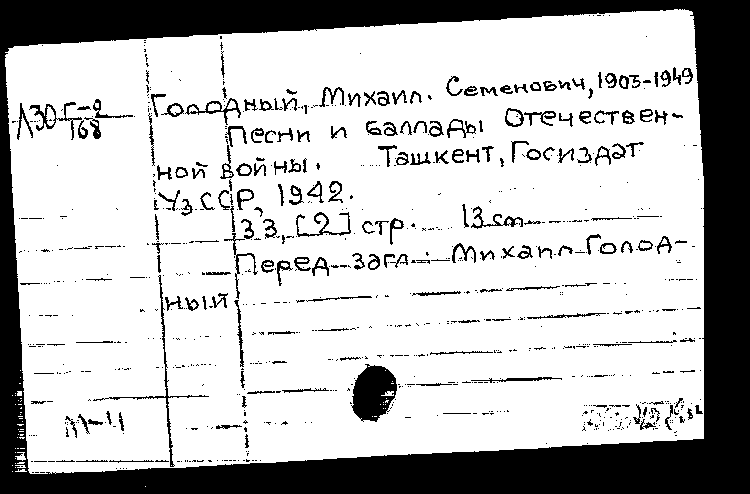 Л30 Г-9/168 Голодный, Михаил. Семенович, 1903-1949
Песни и баллады Отечествен-
ной войны. Ташкент, Госиздат
УзССР, 1942.
33, [2] стр. 13 cm
Перед загл.: Михаил Голод-
ный.
М-41